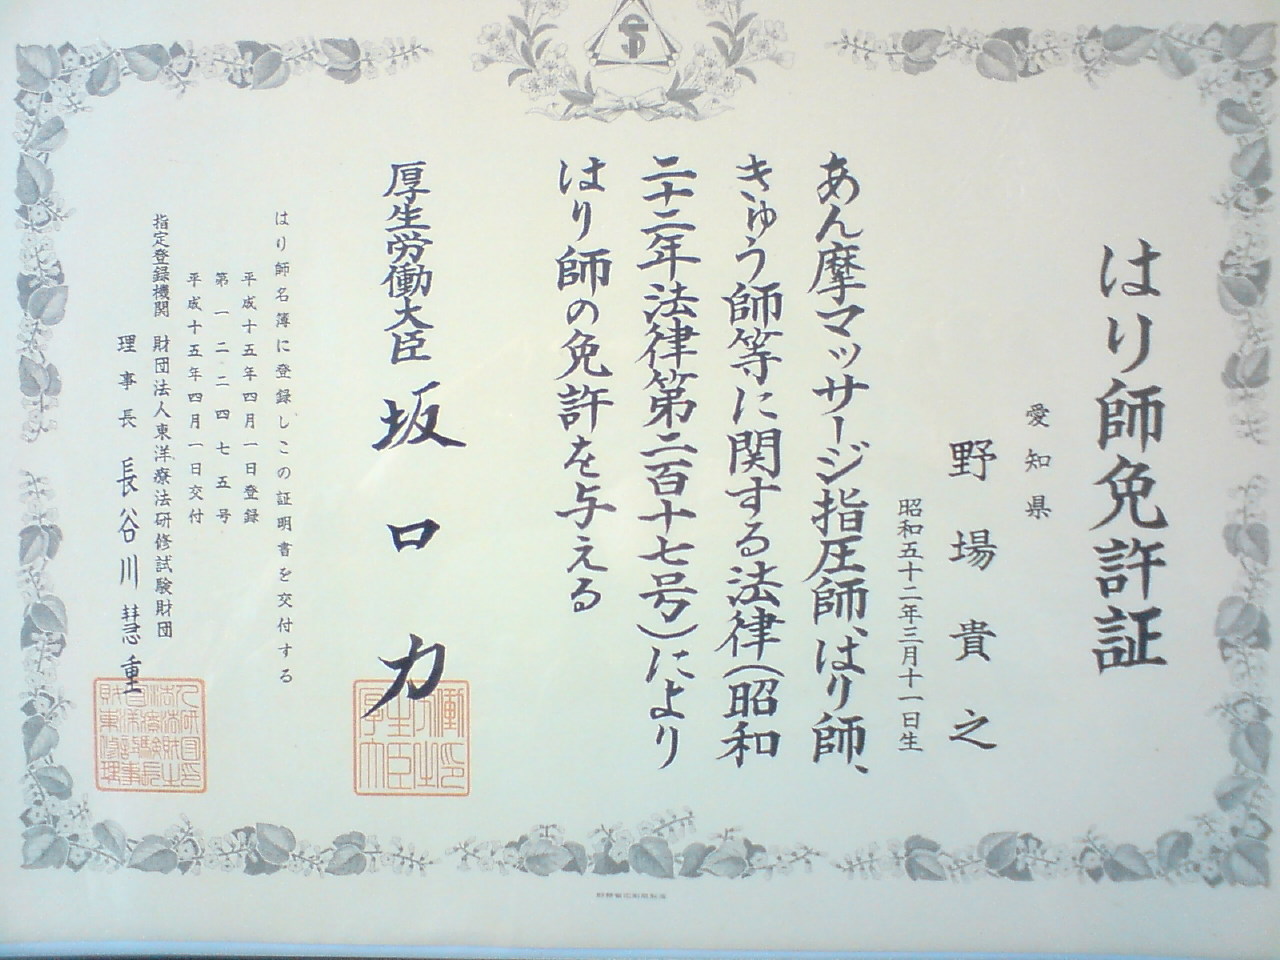 はり師免許証
愛知県
野場貴之
昭和五十二年三月十一日生
あん摩マッサージ指圧師、はり師、
きゅう師等に関する法律(昭和
二十二年法律第二百十七号)により
はり師の免許を与える
厚生労働大臣 坂口力
はり師名簿に登録しこの証明書を交付する
平成十五年四月一日登録
第一二二四七五号
平成十五年四月一日交付
指定登録機関 財団法人東洋療法研修試験財団
理事長 長谷川慧重